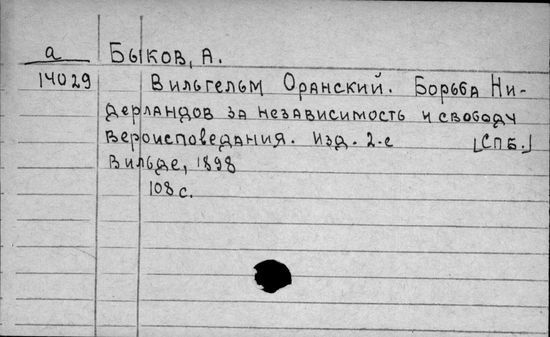 а Быков, А.
14029 Вильгельм Оранский. Борьба Ни-
дерландов за независимость и свободу
вероисповедания. Изд. 2-е [СПБ.]
Вильде, 1898
108 с.